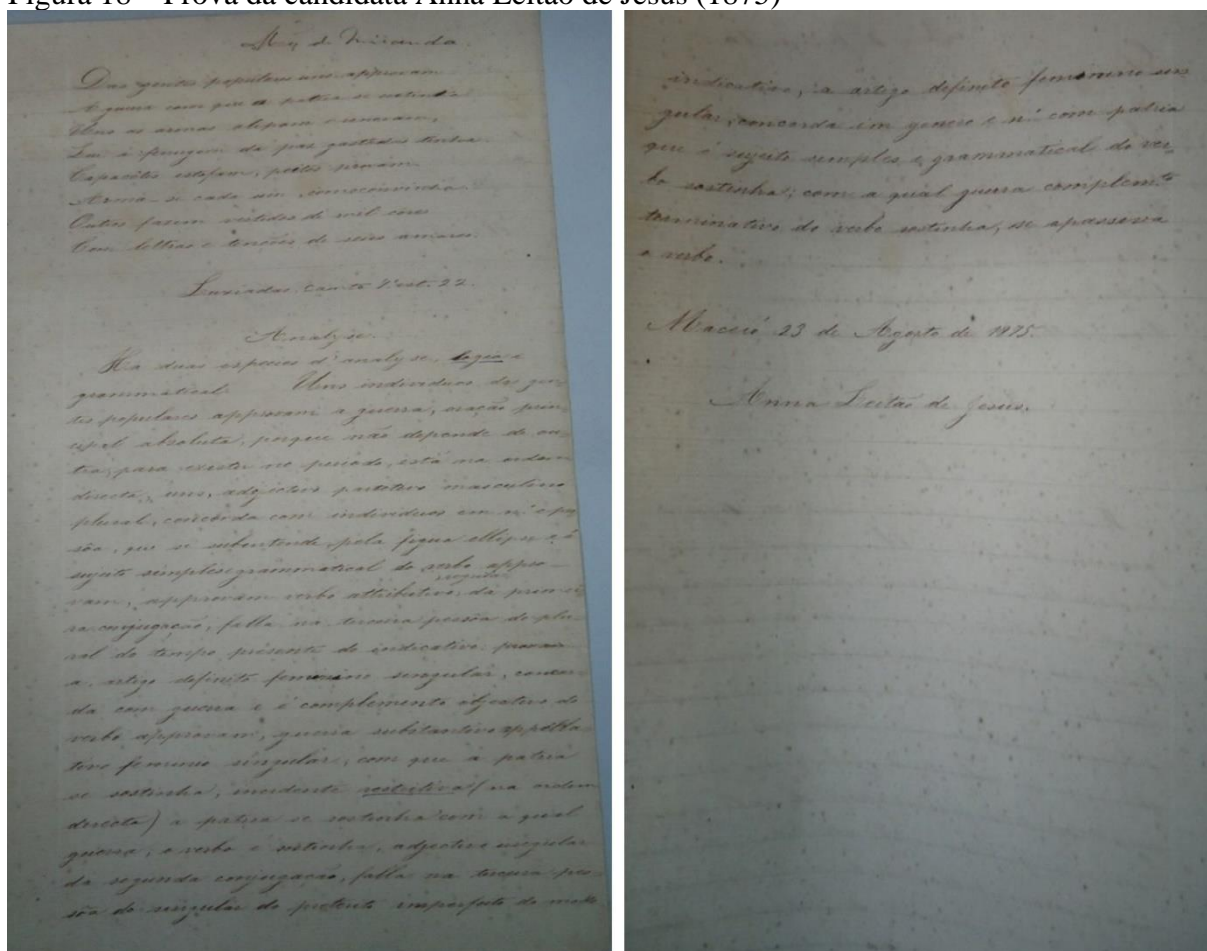 Figura 18 – Prova da candidata Anna Leitão de Jesus (1875)
de Miranda
Das gentes populares uns approvam
A guerra com que a patria se sostinha
Uns as armas alipam e renovam,
Que a ferrugem da paz gastadas tinha
Capacetes estofam, peitos provam
Arma-se cada um
Outros fazem vestidos de mil cores
Com lettras e tenções de seus amores.
Luziadas Canto 4 est. 22.
Analyse.
Ha duas especies d'analyse, logica e
grammatical. Uns individuos das gen-
tes populares approvam a guerra, oração prin-
cipal absoluta, porque não depende de ou-
tra, para existir no periodo, está na ordem
directa, uns, adjectivo partitivo masculino
plural, concorda com individuos em nº e
, que se subentende, pela figura ellipse e é
sujeito simples grammatical do verbo appro-
vam, approvam verbo attributivo, regular da primei-
ra conjugação, falla na terceira pessôa do plu-
ral do tempo presente do indicativo
a, artigo definito feminino singular, concor-
da com guerra e é complemento objectivo do
verbo approvam, guerra substantivo appella-
tivo feminino singular, com que a patria
se sostinha, incidente restrictiva (na ordem
directa) a patria se sostinha com a qual
guerra, o verbo é sostinha, adjectivo irregular
da segunda conjugação, falla na terceira pes-
sôa do singular do preterito imperfeito do modo
indicativo, a artigo definito femenino sin-
gular, concorda em genero e nº com patria
que é sujeito simples e grammatical do ver-
bo sostinha; com a qual guerra complemto
terminativo do verbo sostinha, se apassiva
o verbo.
Maceió 23 de Agosto de 1875.
Anna Leitão de Jesus.